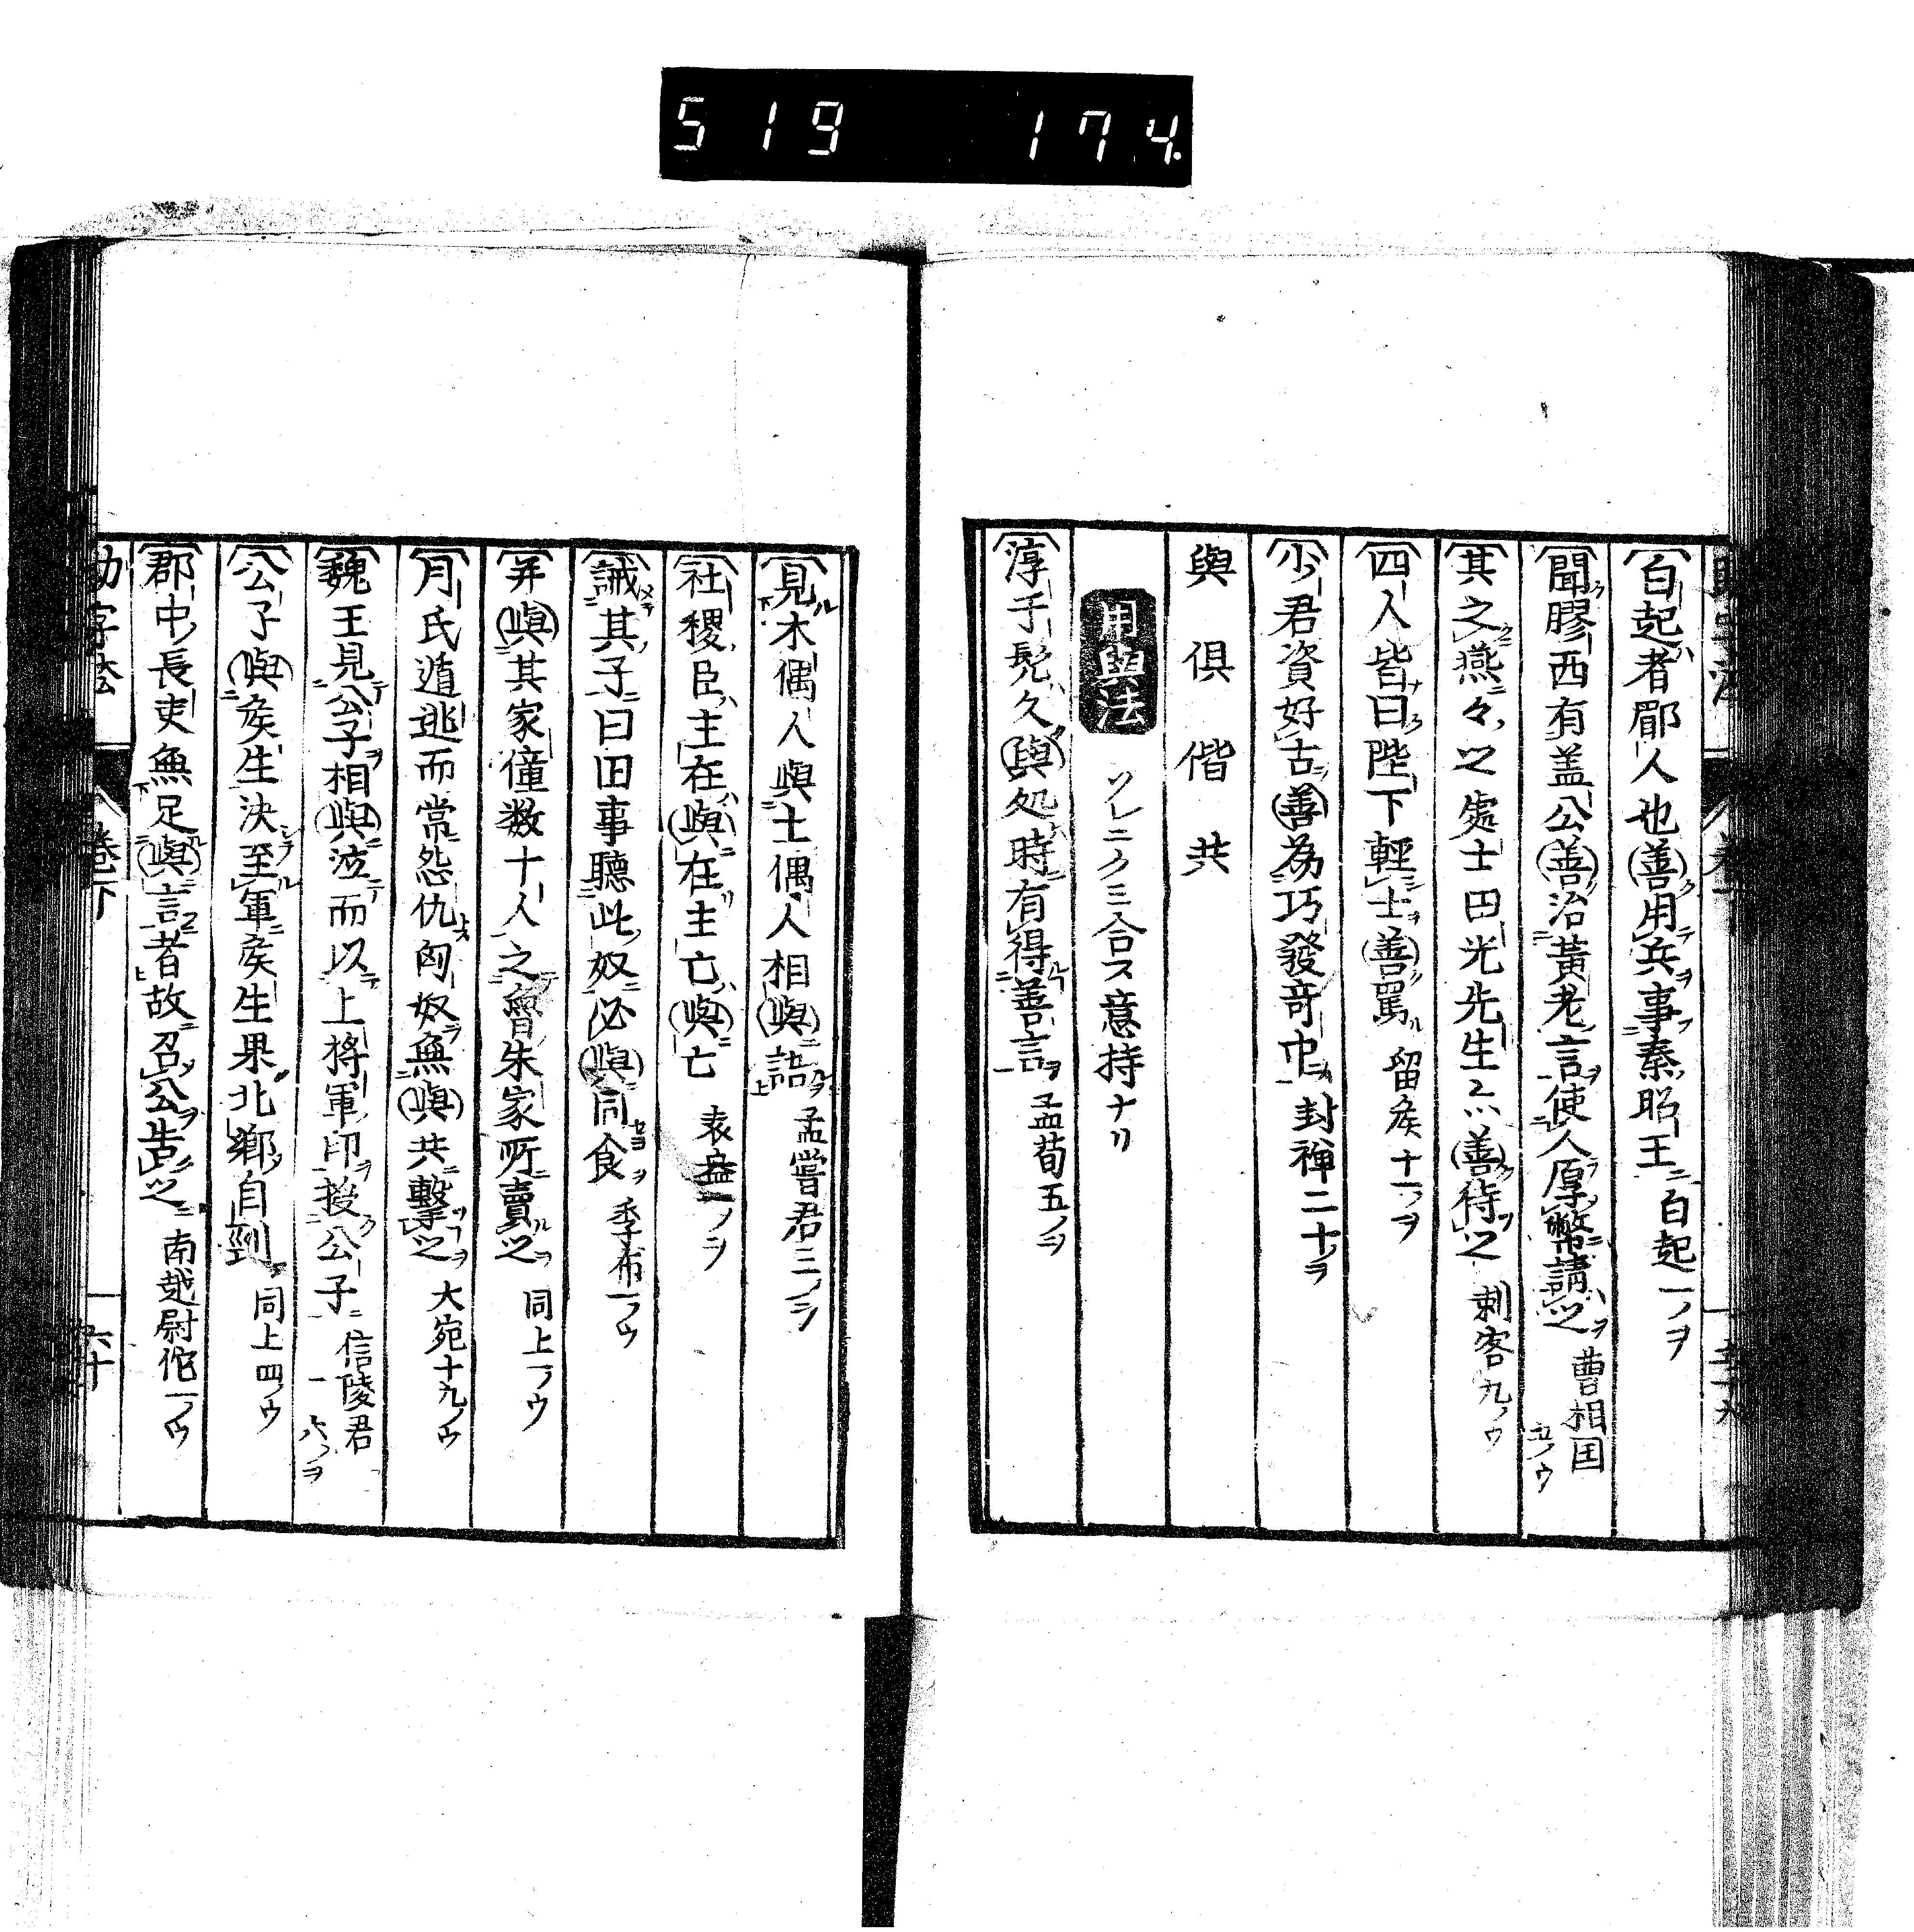 519 174
白起者郿人也善用兵事秦昭王 白起一ノヲ
聞膠西有盖公善治黃老言使人厚幣請之 曹相国
其之燕々之處士田光先生亦善待之 刺客九ノウ
四人皆曰陛下輕士善罵 留矦十一ヲ
少君資好古善為巧發奇中 封禅二十ヲ
與 俱 偕 共
用與法 ソレニクミ合ス意持ナリ
淳于髡久與処時有得善言 孟荀五ノヲ
見木偶人與土偶人相與語 孟嘗君三ノヲ
社稷臣主在與在主亡與亡 袁盎一ノヲ
誡其子曰田事聽此奴必與同食 季布一ノウ
并與其家僮数十人之魯朱家所賣之 同上一ノウ
月氏遁逃而常怨仇匈奴無與共擊之 大宛十九ノウ
魏王見公子相與泣而以上将軍印授公子 信陵君 六ノヲ
公子與矦生決至軍矦生果北鄉自剄 同上四ノウ
郡中長吏無足與言者故召公告之 南越尉佗一ノウ
卷下
六十